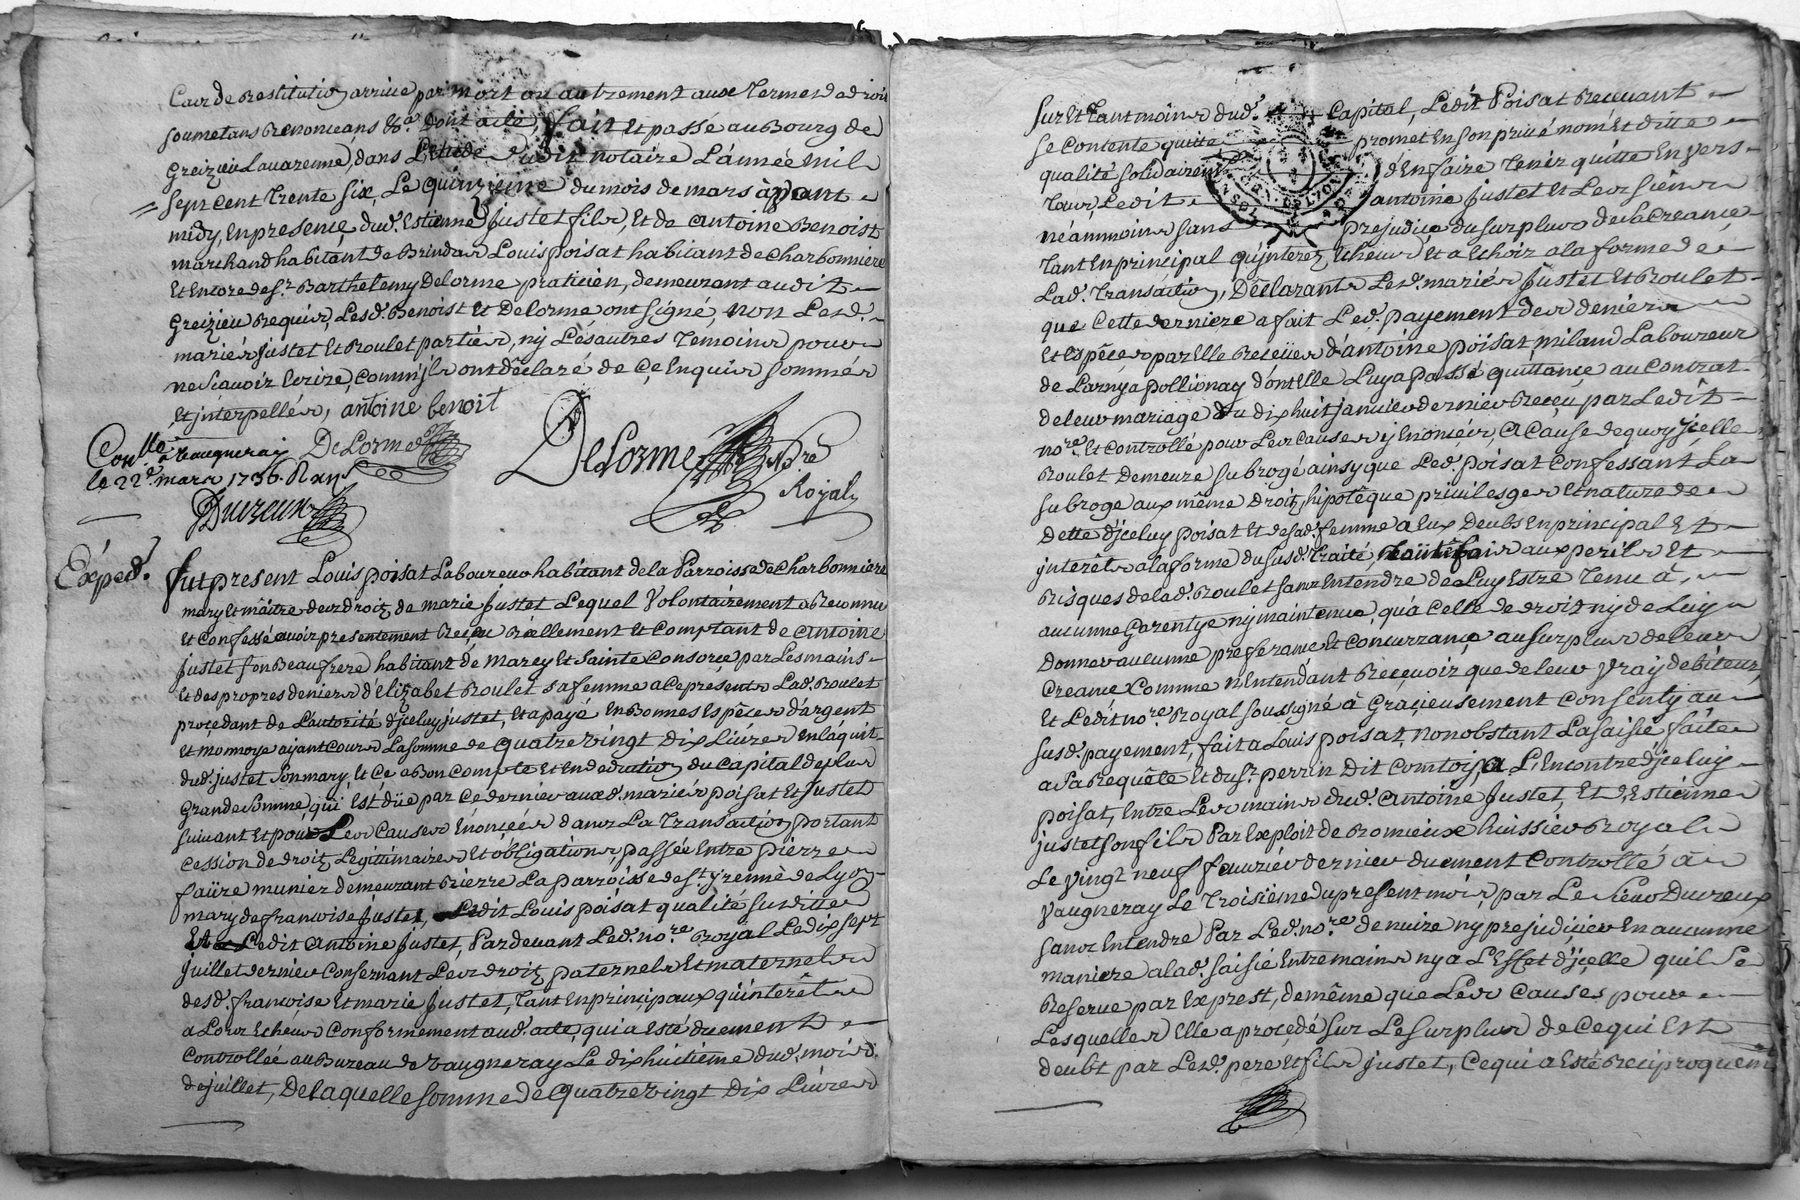 Cas de Restitution arrivé par mort ou autrement aux Termes de droit
soumetans Renonceans &ca. Dont acte, fait Et passé au Bourg de
Greizieu Lavarenne, dans L'Etude dudit notaire L'année mil
sept cent Trente six, Le quinzieme du mois de mars avant
midy, En presence dud. Estienne Justet fils, Et de antoine Benoist
marchand habitant de Brindas Louis poisat habitant de Charbonniere
Et Encore de sr. Barthelemy Delorme praticien, demeurant audit
Greizieu Requis, Lesd. Benoist Et Delorme ont signé, non Lesd.
mariés Justet Et Roulet parties, ny Les autres Temoins pour
ne scavoir Ecrire, comm'jls ont dêclaré de ce Enquis sommés
Et jnterpellés, antoine benoit
Delorme
Delorme Nore
Royal
Conllé a vaugneray
le 22e. mars 1736. R
Ducreux
Exped.
fut present Louis poisat Laboureur habitant de la Parroisse de Charbonniere
mary Et maître des droitz de marie Justet Lequel Volontairement a Reconnu
Et Confessé avoir presentement Reçeu Réellement Et Comptant de Antoine
Justet son Beaufrere habitant de Marcy Et Sainte Consorce par Les mains
Et des propres deniers d'Elizabet Roulet sa femme a ce presente Lad. Roulet
procedant de L'autorité d'jceluy justet, Et a payé En Bonnes Espêces d'argent
Et monnoye ajant Cours La somme de quatre vingt Dix Livres En L'aquit
dud. justet son mary, Et Ce a Bon compte Et En deduction du Capital de plus
Grande somme, qui Est düe par Ce dernier auxd. mariés poisat Et Justet
suivant Et pour Les Causes Enoncées dans La Transaction portant
cession de droitz Legitimaires Et obligation, passée Entre pierre
faüre munier demeurant Rierre La parroisse de St. jrenné de Lyon
mary de francoise Justet, Ledit Louis poisat qualité susditte
Et Ledit Antoine Justet, Pardevant Led. nore. Royal Le dix sept
juillet dernier Consernant Les droitz paternels Et maternels
desd. françoise Et marie Justet, Tant En principaux qu'interêts
a Lors Echeus Conformement aud. acte, qui a Esté duement
Controllée au Bureau de Vaugneray Le dix huitieme dud. mois
de juillet, De Laquelle somme de quatre vingt Dix Livres
sur Et Tant moins dud. Capital, Ledit Poisat Recevant
se Contente quitte promet En son privé nom Et ditte
qualité solidairemt d'En faire Tenir quitte Envers
Tous, Ledit antoine Justet Et Les siens
néanmoins sans prejudice du surplus de la Creance
Tant En principal qu'jnterez Echeus Et a Echoir a la forme de
Lad. Transaction, Dêclarants Lesd. mariés Justet Et Roulet
que Cette derniere a fait Led. payement des deniers
Et Espêces par Elle Reçeües d'antoine poisat miland Laboureur
de Larny a pollionay d'ont Elle Luy a passé quittance au Contrat
de leur mariage du dix huit janvier dernier Reçeu par Ledit
nore. Et Controllé pour Les Causes y Enoncées, A Cause de quoy jcelle
Roulet demeure subrogé ainsy que Led. poisat Confessant La
subroge aux même droitz, hipotêque privileges Et nature de
dette d'jceluy poisat Et de sad. femme a Eux deubs En principal Et
jnterêts a la forme du susd. Traité, Toutêfois aux perils Et
Risques de lad. Roulet sans Entendre de Luy Estre Tenu à
aucunne Garentye ny maintenue, qu'a Celle de droit ny de Luy
Donner aucunne preferance Et Concurrance au surplus de leur
Creance Comme n'Entendant Recevoir que de leur Vray debiteur,
Et Ledit nore. Royal soussigné à Gracieusement Consenty au
susd. payement, fait a Louis poisat, nonobstant La saisie faite
a sa Requête Et du sr. perrin Dit Comtois a L'Encontre d'jceluy
poisat, Entre Les mains dud. Antoine Justet, Et d'Estienne
justet son fils Par Exploit de Romieux huissier Royal
Le Vingt neuf fevrier dernier duement Controllé à
Vaugneray Le Troisiëme du present mois, par Le sieur Ducreux
sans Entendre Par Led. nore. de nuire ny prejudicier En aucunne
maniere a lad. saisie Entre mains ny a L'Effet d'jcelle qu'il se
Reserve par Exprest, de même que Les Causes pour
Lesquelles Elle a procedé sur Le surplus de Ce qui Est
deubt par Lesd. pere Et fils Justet, Ce qui a Esté Reciproquemt